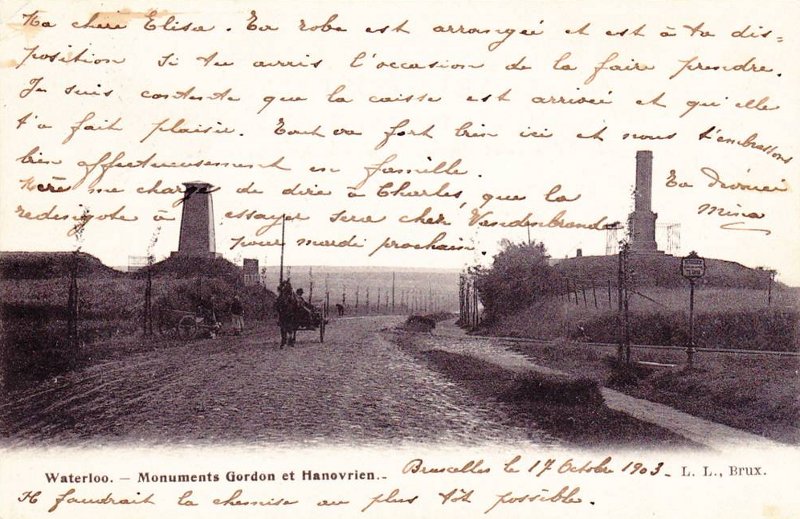 Ma cheri Elisa. Ta robe est arrangeé et est à ta dis=
position si tu avais l'occasion de la faire prendre.
Je suis contente que la caisse est arriveé et qu'elle
t'a fait plaisir. Tout va fort bien ici et nous t'embrassons
bien affectueusement en famille.
Mère me charge de dire à Charles, que la
redingote à essayer sera cher Vandenbrand
pour mardi prochain
Ta
Mina
Waterloo. – Monuments Gordon et Hanovrien.-
Bruxelles le 17 Octobre 1903
L. L., Brux.
Il faudrait la chemise au plus tôt possible.